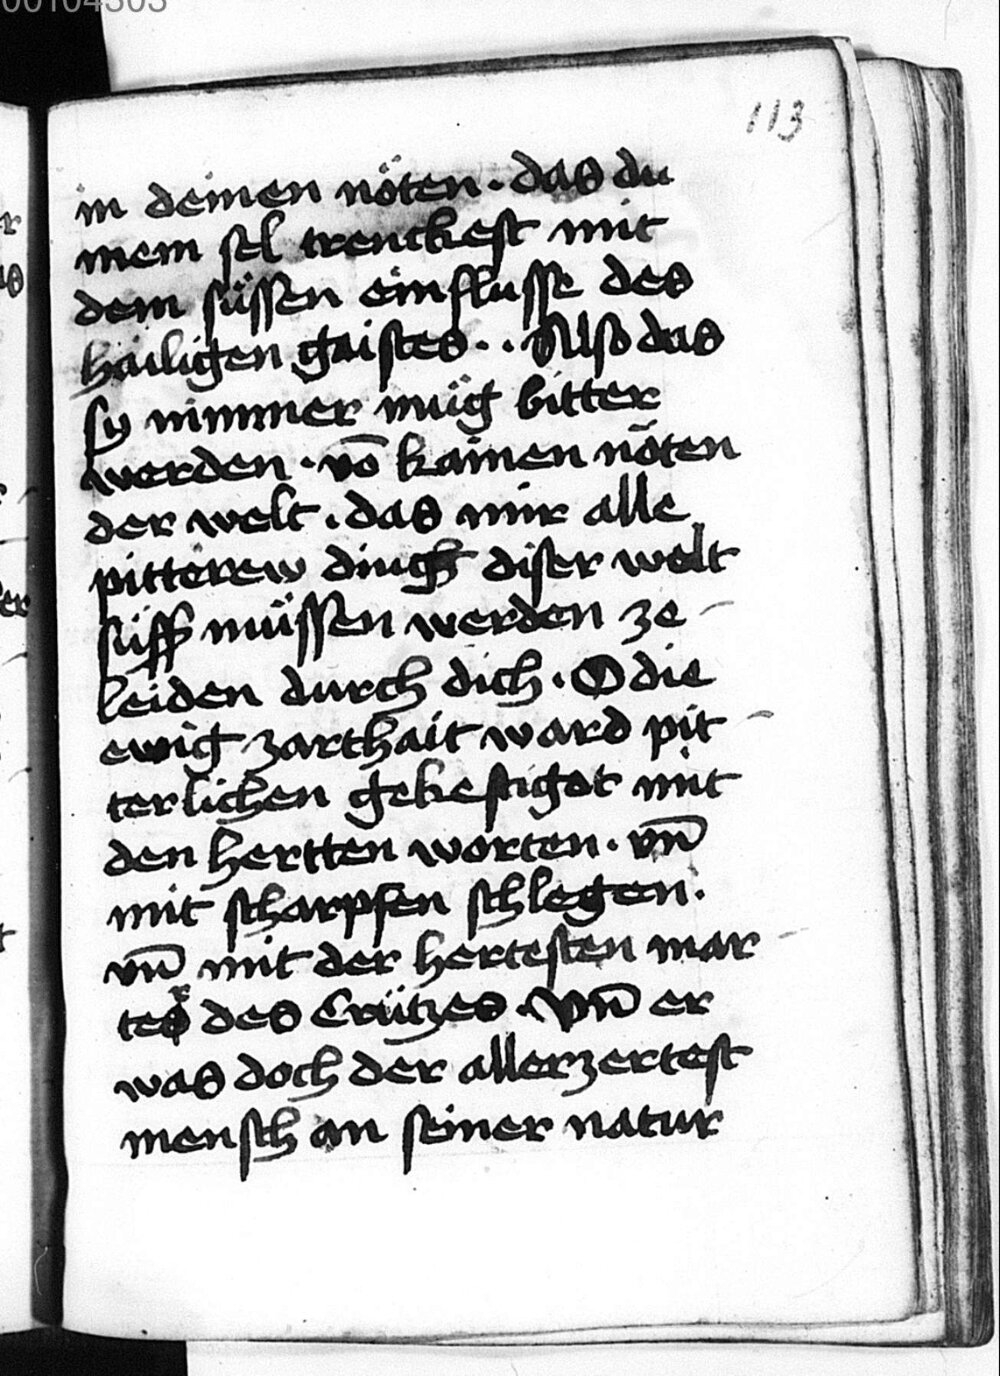 00104303
113
in deinen nöten · das du
mein sel trenckest mit
dem süssen einflusse des
hailigen gaistes · · Also das
sy nimmer müg bitter
werden · vō kainen nöten
der welt · das mir alle
pitterew dingk diser welt
süss müssen werden ze -
leiden durch dich · O die
ewig zarthait ward pit -
terlichen gekestigot mit
den hertten worten · vn̄
mit scharpfen schlegen ·
vn̄ mit der hertesten mar -
ter des Crützes · Vn̄ er
was doch der allerzertest
mensch an seiner natur